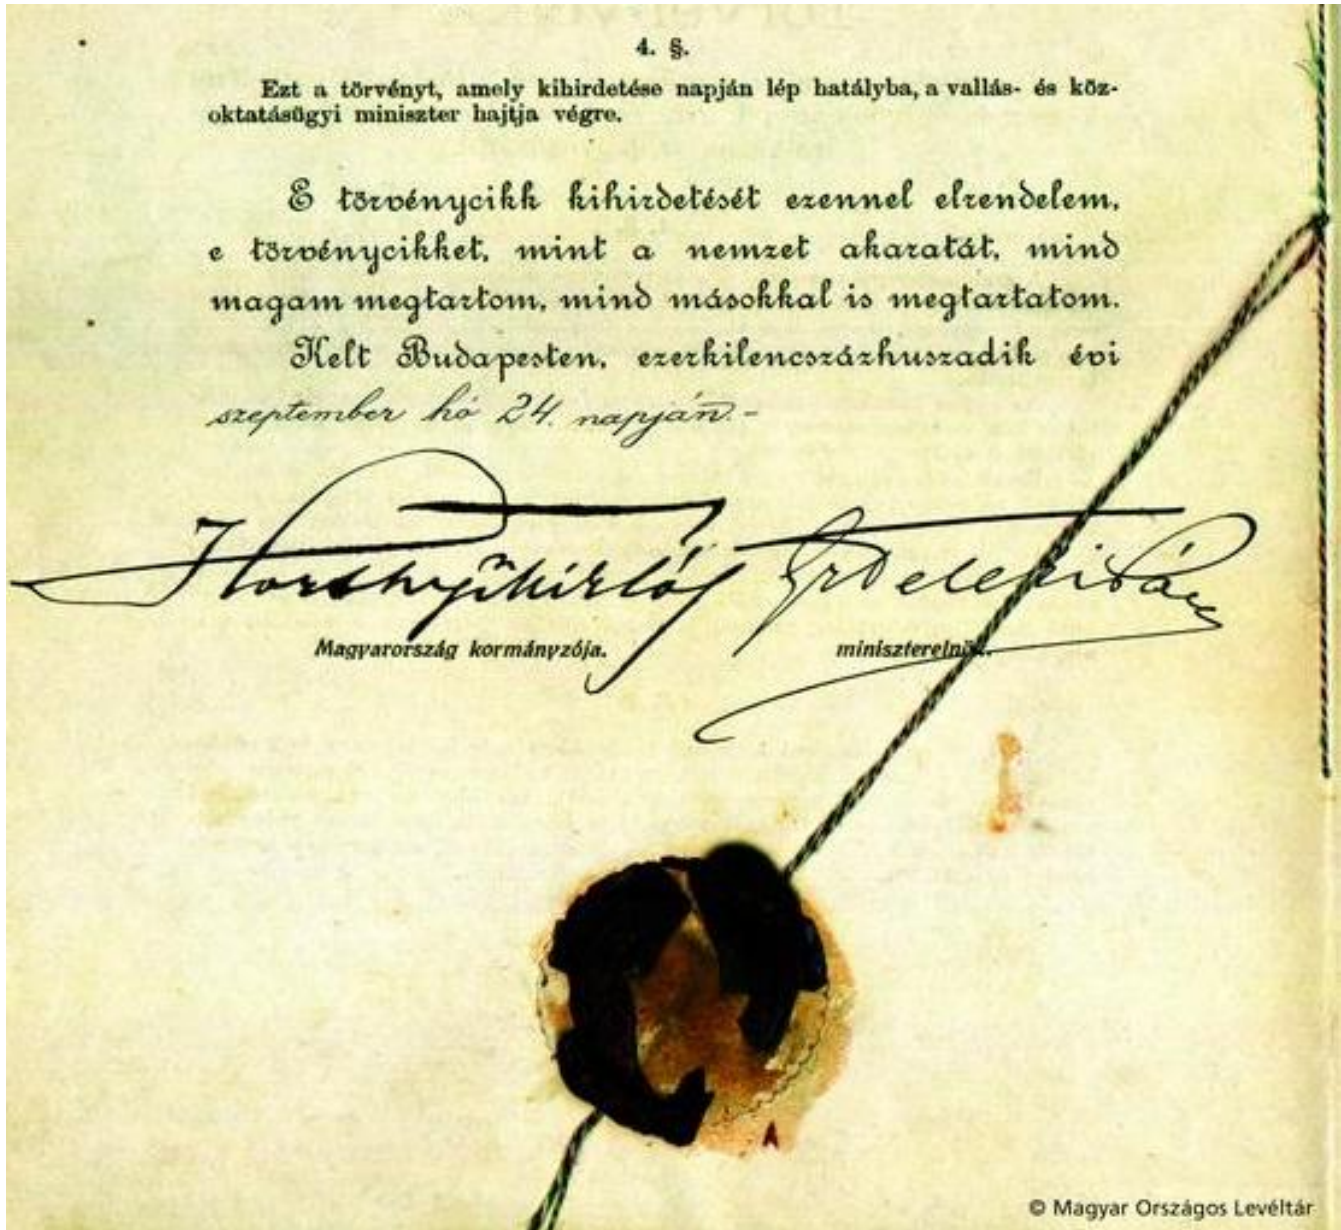 4. §.
Ezt a törvényt, amely kihirdetése napján lép hatályba, a vallás- és köz-
oktatásügyi miniszter hajtja végre.
E törvénycikk kihirdetését ezennel elrendelem,
e törvénycikket, mint a nemzet akaratát, mind
magam megtartom, mind másokkal is megtartatom.
Kelt Budapesten, ezerkilencszázhuszadik évi
szeptember hó 24. napján.-
Horthy Miklós Gr Teleki Pál
Magyarország kormányzója. miniszterelnök.
A
© Magyar Országos Levéltár